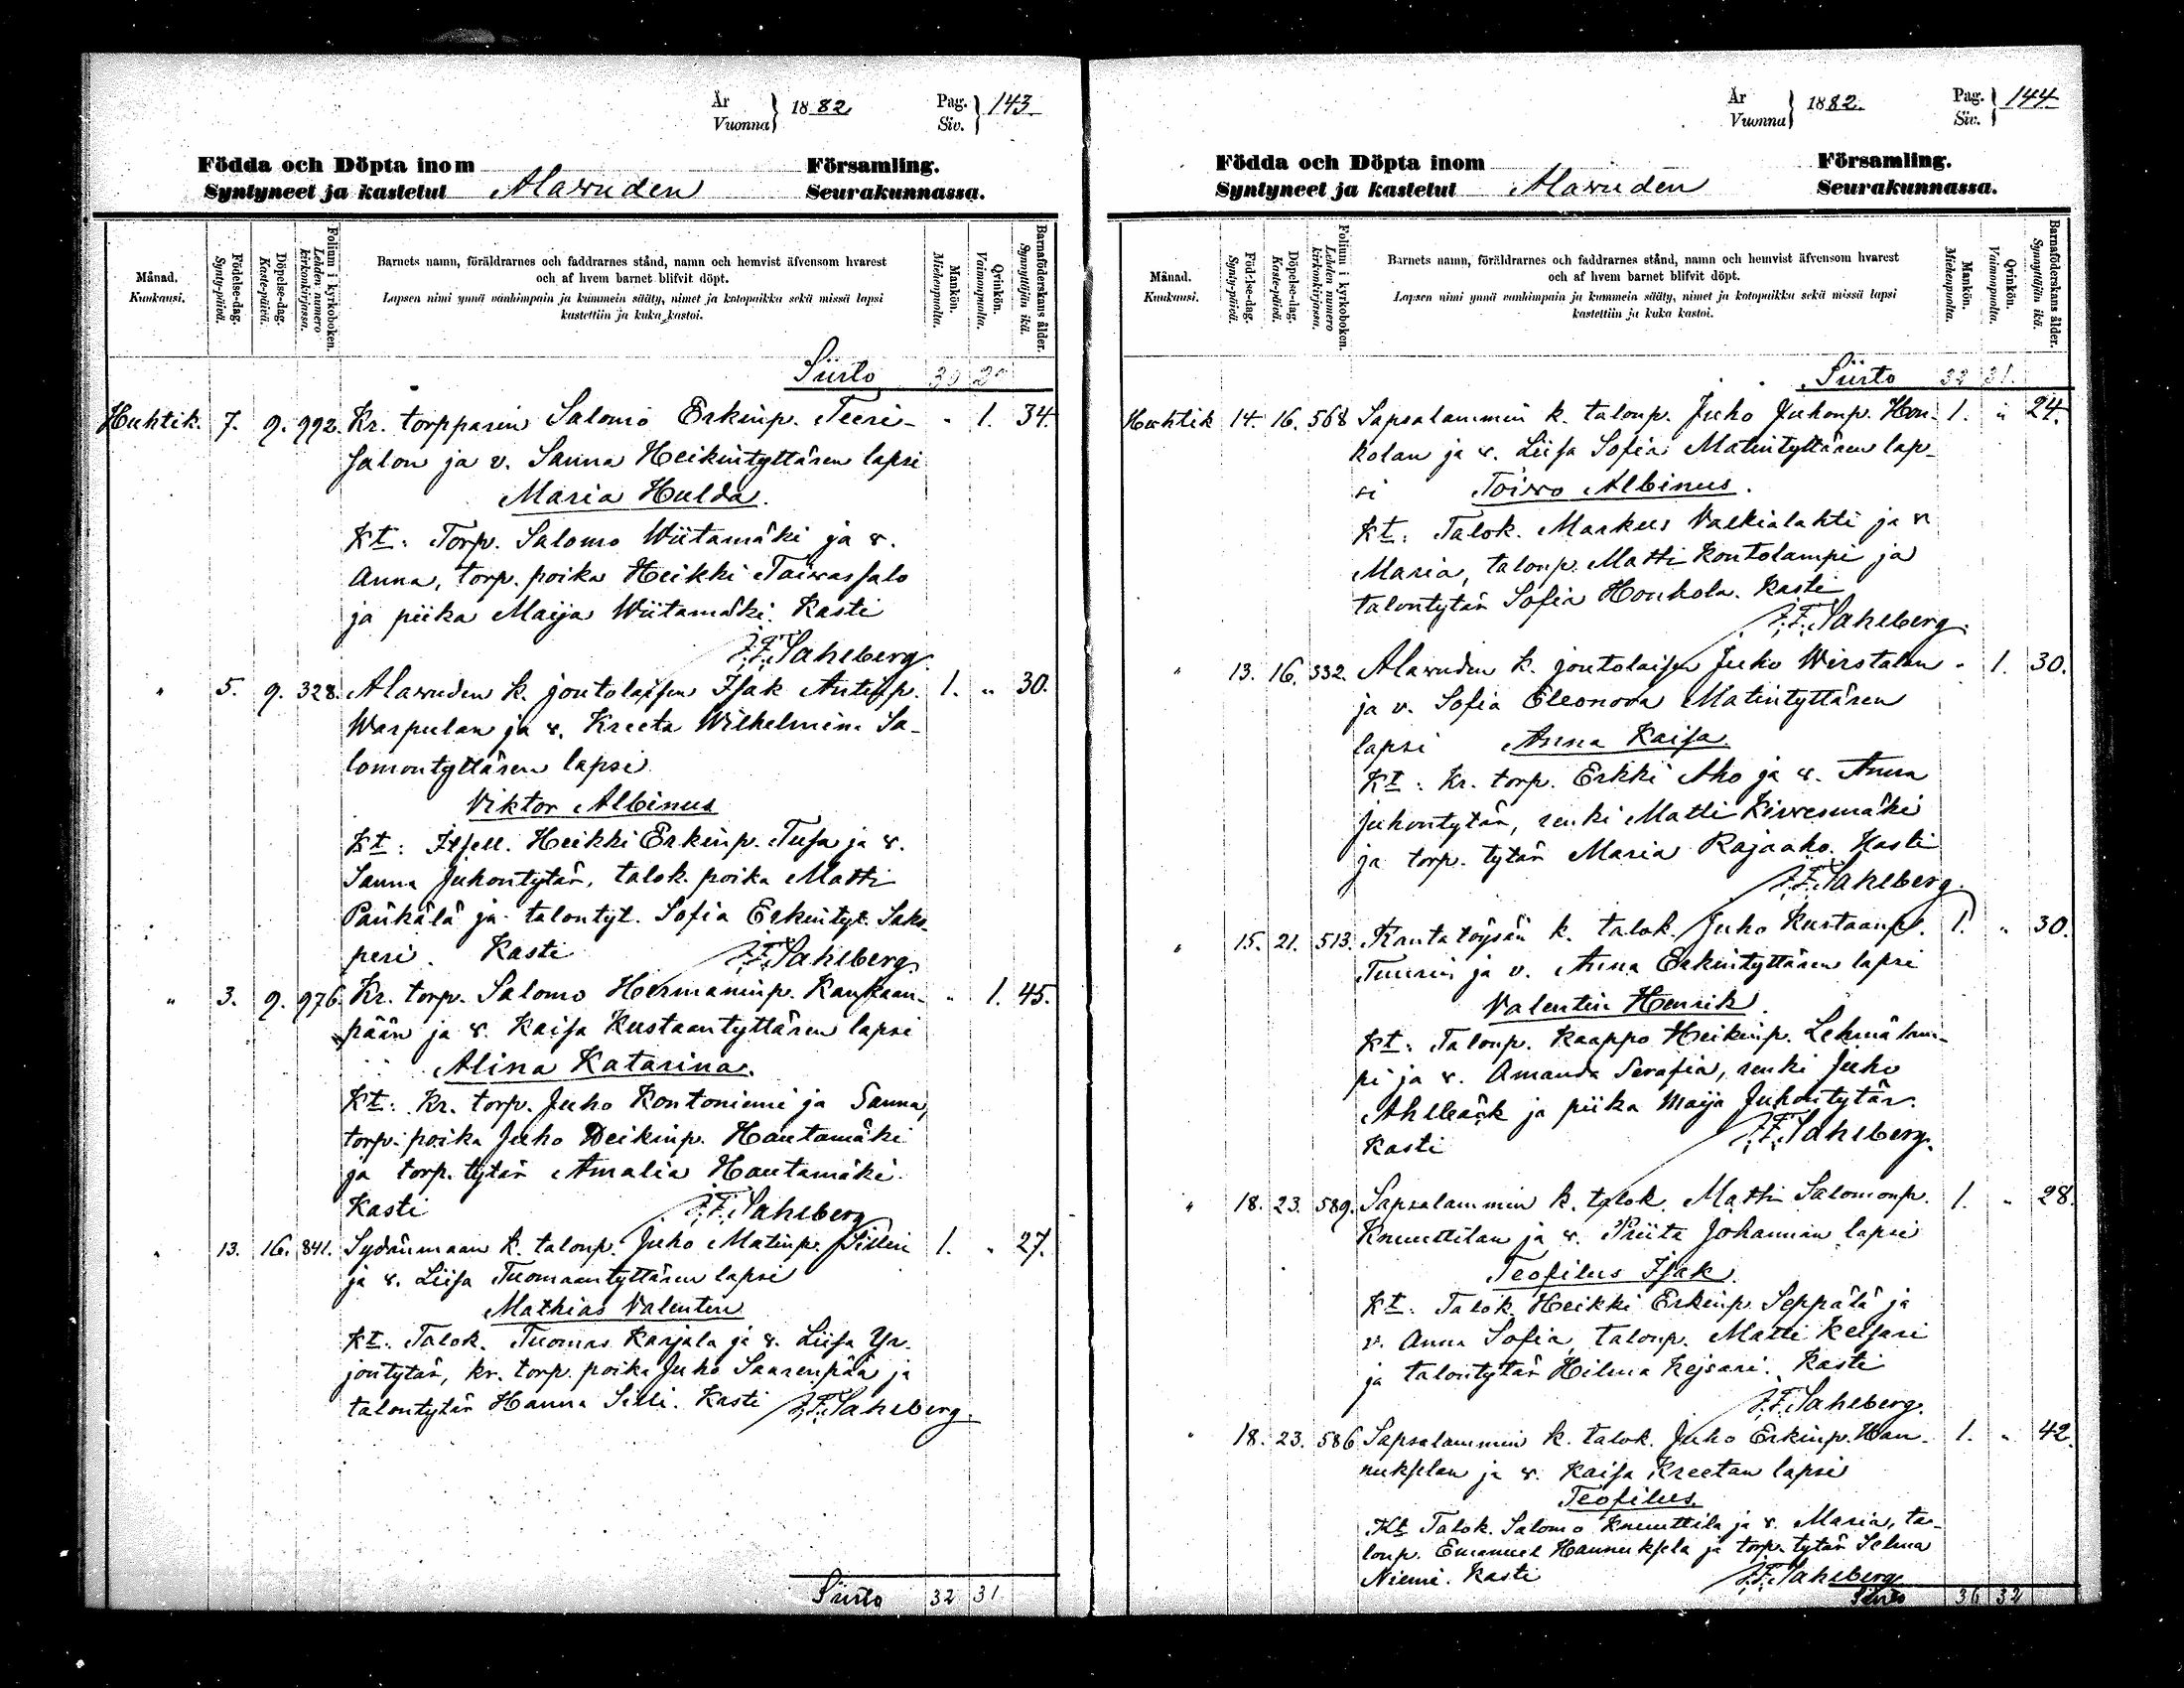 År
Vuonna } 1882. Pag. Siv. } 143
Födda och Döpta inom Församling.
Syntyneet ja kastetut Alawuden Seurakunnassa.
Månad.
Kuukausi.
Födelse-dag.
Synty-päivä.
Döpelse-dag.
Kaste-päivä.
Folium i kyrkoboken.
Lehden numero kirkonkirjassa.
Barnets namn, föräldrarnes och faddrarnes stånd, namn och hemvist äfvensom hvarest
och af hvem barnet blifvit döpt.
Lapsen nimi ynnä vanhimpain ja kummein sääty, nimet ja kotopaikka sekä missä lapsi
kastettiin ja kuka kastoi.
Mankön.
Miehenpuolta.
Qvinkön.
Vaimonpuolta.
Barnaföderskans ålder.
Synnyttäjän ikä.
Siirto 30
Huhtik. 7. 9. 992. Kr. torpparin Salomo Erkinp. Teeri- " 1. 34.
salon ja v. Sanna Heikintyttären lapsi
Maria Hulda.
Kt: Torp. Salomo Wiitamäki ja v.
Anna, torp. poika Heikki Taiwassalo
ja piika Maija Wiitamäki. Kasti
J.F. Sahlberg.
" 5. 9. 328. Alawuden k. joutolaisen Isak Antinp. 1. " 30.
Warpulan ja v. Kreeta Wilhelmina Sa-
lomontyttären lapsi
Viktor Albinus
Kt: Itsell. Heikki Erkinp. Tusa ja v.
Sanna Juhontytär, talok. poika Matti
ja talontyt. Sofia Erkintyt. Saks-
peri. Kasti J.F. Sahlberg.
" 3. 9. 976. Kr. torp. Salomo Hermaninp. Kankaan- " 1. 45.
pään ja v. Kaisa Kustaantyttären lapsi
Alina Katarina.
Kt: Kr. torp. Juho Kontoniemi ja Sanna,
torp. poika Juho Heikinp. Hautamäki
ja torp. tytär Amalia Hautamäki
Kasti J.F. Sahlberg
" 13. 16. 841. Sydänmaan k. talonp. Juho Matinp. Sillin 1. " 27.
ja v. Liisa Tuomaantyttären lapsi
Mathias Valentin
Kt: Talok. Tuomas Karjala ja v. Liisa Yr-
jöntytär, kr. torp. poika Juho Saarenpää ja
talontytär Hanna Silli. Kasti J.F. Sahlberg.
Siirto 32 31
År
Vuonna } 1882. Pag. Siv. } 144
Födda och Döpta inom Församling.
Syntyneet ja kastetut Alawuden Seurakunnassa.
Månad.
Kuukausi.
Födelse-dag.
Synty-päivä.
Döpelse-dag.
Kaste-päivä.
Folium i kyrkoboken.
Lehden numero kirkonkirjassa.
Barnets namn, föräldrarnes och faddrarnes stånd, namn och hemvist äfvensom hvarest
och af hvem barnet blifvit döpt.
Lapsen nimi ynnä vanhimpain ja kummein sääty, nimet ja kotopaikka sekä missä lapsi
kastettiin ja kuka kastoi.
Mankön.
Miehenpuolta.
Qvinkön.
Vaimonpuolta.
Barnaföderskans ålder.
Synnyttäjän ikä.
Siirto 32 31.
Huhtik 14. 16. 568 Sapsalammin k. talonp. Juho Juhonp. Hon- 1. " 24.
kolan ja v. Liisa Sofia Matintyttären lap-
si Toiwo Albinus.
Kt: Talok. Markus Valkialahti ja v.
Maria, talonp. Matti Kontolampi ja
talontytär Sofia Honkola. Kasti
J.F. Sahlberg.
" 13. 16. 332. Alawuden k. joutolaisen Juho Wirstalan " 1. 30.
ja v. Sofia Eleonora Matintyttären
lapsi Anna Kaisa.
Kt: Kr. torp. Erkki Aho ja v. Anna
Juhontytär, renki Matti Kiwesmäki
ja torp. tytär Maria Rajaaho. Kasti
J.F. Sahlberg.
" 15. 21. 513. Rantatöysän k. talok. Juho Kustaanp. 1. " 30.
Tuurin ja v. Anna Erkintyttären lapsi
Valentin Henrik.
Kt: Talonp. Kaappo Heikinp. Lehmälam-
pi ja v. Amanda Serafia, renki Juho
Ahlbäck ja piika Maija Juhontytär.
Kasti J.F. Sahlberg.
" 18. 23. 589. Sapsalammin k. talok. Matti Salomonp. 1. " 28.
Knuuttilan ja v. Priita Johannan lapsi
Teofilus Isak.
Kt: Talok. Heikki Erkinp. Seppälä ja
v. Anna Sofia, talonp. Matti Keisari
ja talontytär Hilma Kejsari. Kasti
J.F. Sahlberg.
" 18. 23. 586 Sapsalammin k. talok. Juho Erkinp. Han- 1. " 42.
nukselan ja v. Kaisa Kreetan lapsi
Teofilus.
Kt Talok. Salomo Knuuttila ja v. Maria, ta-
lonp. Emanuel Hannuksela ja torp. tytär Selma
Niemi. Kasti J.F. Sahlberg
Siirto 36 32